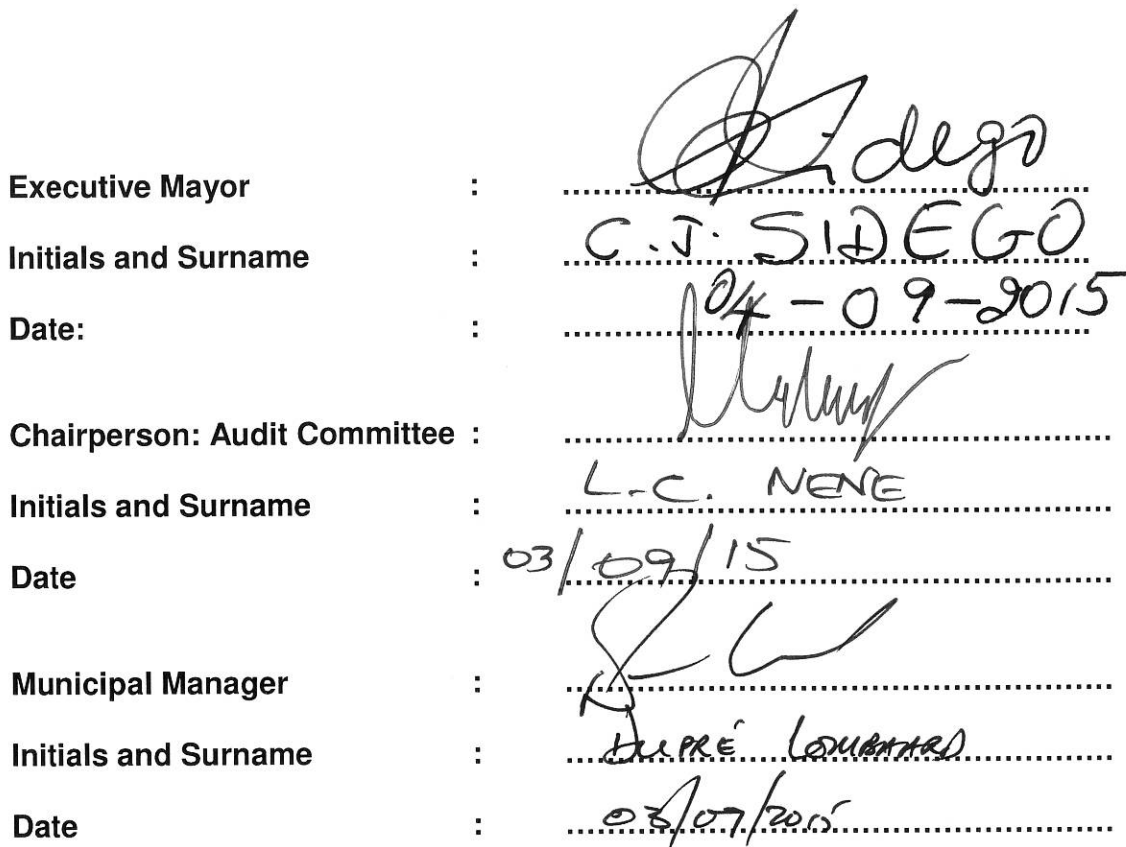 Executive Mayor : Sidego
Initials and Surname : C.J. SIDEGO
Date: : 04-09-2015
Chairperson: Audit Committee :
Initials and Surname : L.C. NENE
Date : 03/09/15
Municipal Manager :
Initials and Surname : DUPRÉ LOMBAARD
Date :